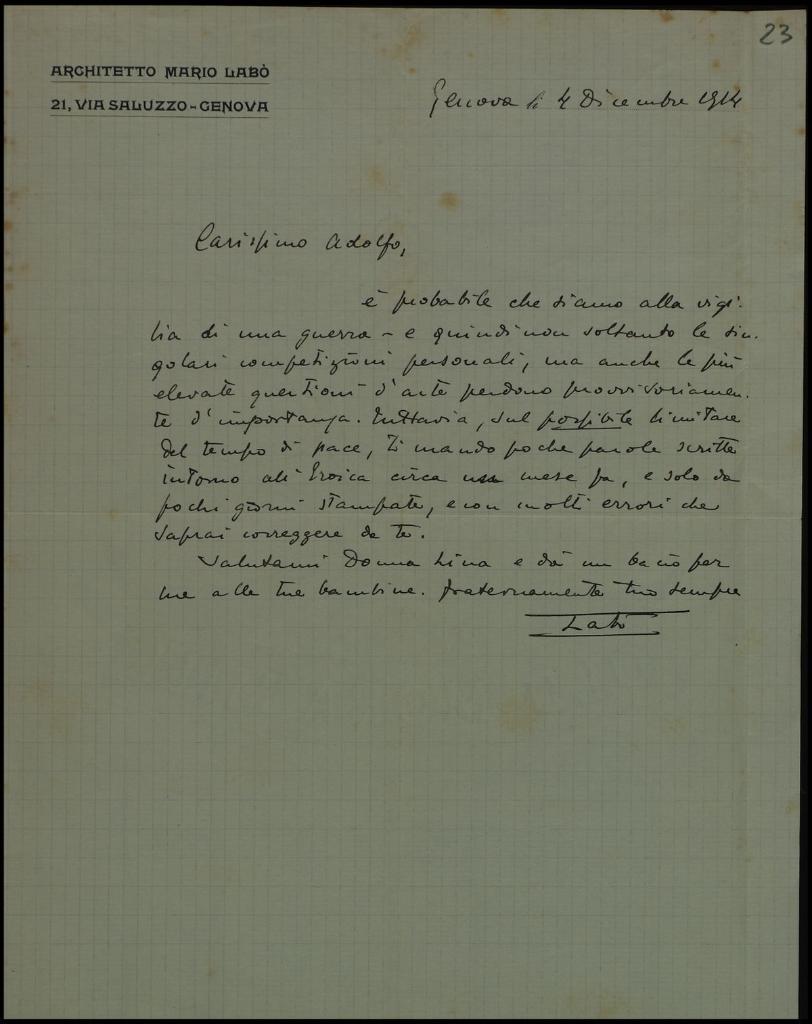 23
ARCHITETTO MARIO LABÒ
21, VIA SALUZZO - GENOVA
Genova li 4 Dicembre 1914
Carissimo Adolfo,
è probabile che siamo alla vigi-
lia di una guerra - e quindi non soltanto le sin-
golari competizioni personali, ma anche le più
elevate questioni d'arte perdono provvisoriamen-
te d'importanza. Tuttavia, sul possibile limitare
del tempo di pace, ti mando poche parole scritte
intorno all'Eroica circa un mese fa, e solo da
pochi giorni stampate, e con molti errori che
saprai correggere da te.
Salutami Donna Lina e dà un bacio per
me alle tue bambine. Fraternamente tuo sempre
Labò